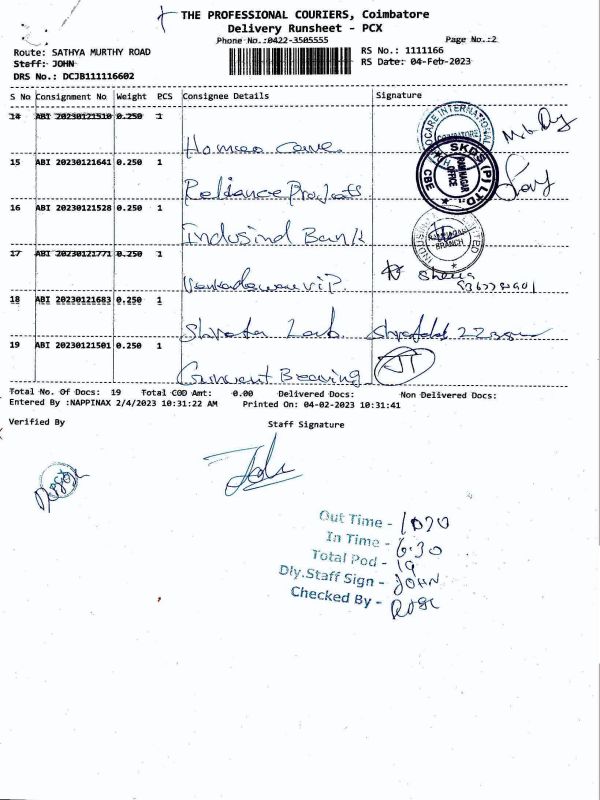 THE PROFESSIONAL COURIERS, Coimbatore
Delivery Runsheet - PCX
Phone No.:0422-3505555 Page No.:2
Route: SATHYA MURTHY ROAD RS No.: 1111166
Staff: JOHN RS Date: 04-Feb-2023
DRS No.: DCJB111116602
S No Consignment No Weight PCS Consignee Details Signature
14 ABI 20230121510 0.250 1
Homeo Care
15 ABI 20230121641 0.250 1
Reliance Projects
SKDS (P) LTD
OFFICE
CBE
16 ABI 20230121528 0.250 1
Indusind Bank
BRANCH
17 ABI 20230121771 0.250 1
VIP
18 ABI 20230121683 0.250 1
19 ABI 20230121501 0.250 1
Total No. Of Docs: 19 Total COD Amt: 0.00 Delivered Docs: Non Delivered Docs:
Entered By :NAPPINAX 2/4/2023 10:31:22 AM Printed On: 04-02-2023 10:31:41
Verified By Staff Signature
Out Time - 1020
In Time - 6.30
Total Pod - 19
Dly.Staff Sign - JOHN
Checked By -